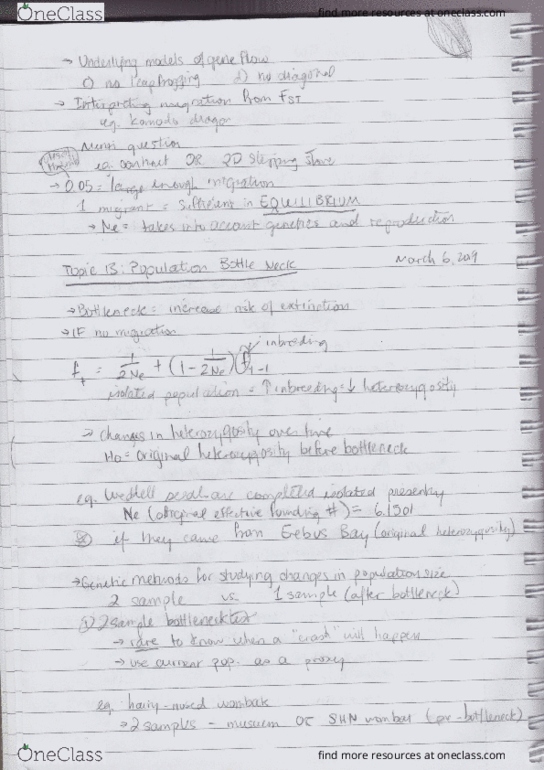 OneClass
find more resources at oneclass.com
→ Underlying models of gene flow
① no leapfrogging 2) no diagonal
→ Interpreting migration from FST
eg. Komodo dragon
question
eg. contract OR 2D Stepping Stone
→ 0.05 = large enough migration
1 migrant = sufficient in EQUILIBRIUM
→ Ne = takes into account genetics and reproduction
Topic 13: Population Bottle Neck
March 6, 2019
→ Bottleneck = increase risk of extinction
→ IF no migration
inbreeding
ft = 1/2Ne + (1 - 1/2Ne) ft-1
isolated population = ↑ inbreeding = ↓ heterozygosity
→ changes in heterozygosity over time
Ho = original heterozygosity before bottleneck
eg. Weddell seal are completed isolated presently
Ne (original effective founding #) = 6.1301
if they came from Erebus Bay (original heterozygosity)
→ Genetic methods for studying changes in population size
2 sample vs. 1 sample (after bottleneck)
① 2 sample bottleneck
→ rare to know when a "crash" will happen
→ use current pop. as a proxy
eg. hairy-nosed wombat
→ 2 samples - museum OR SHN wombat (pre-bottleneck)
OneClass
find more resources at oneclass.com